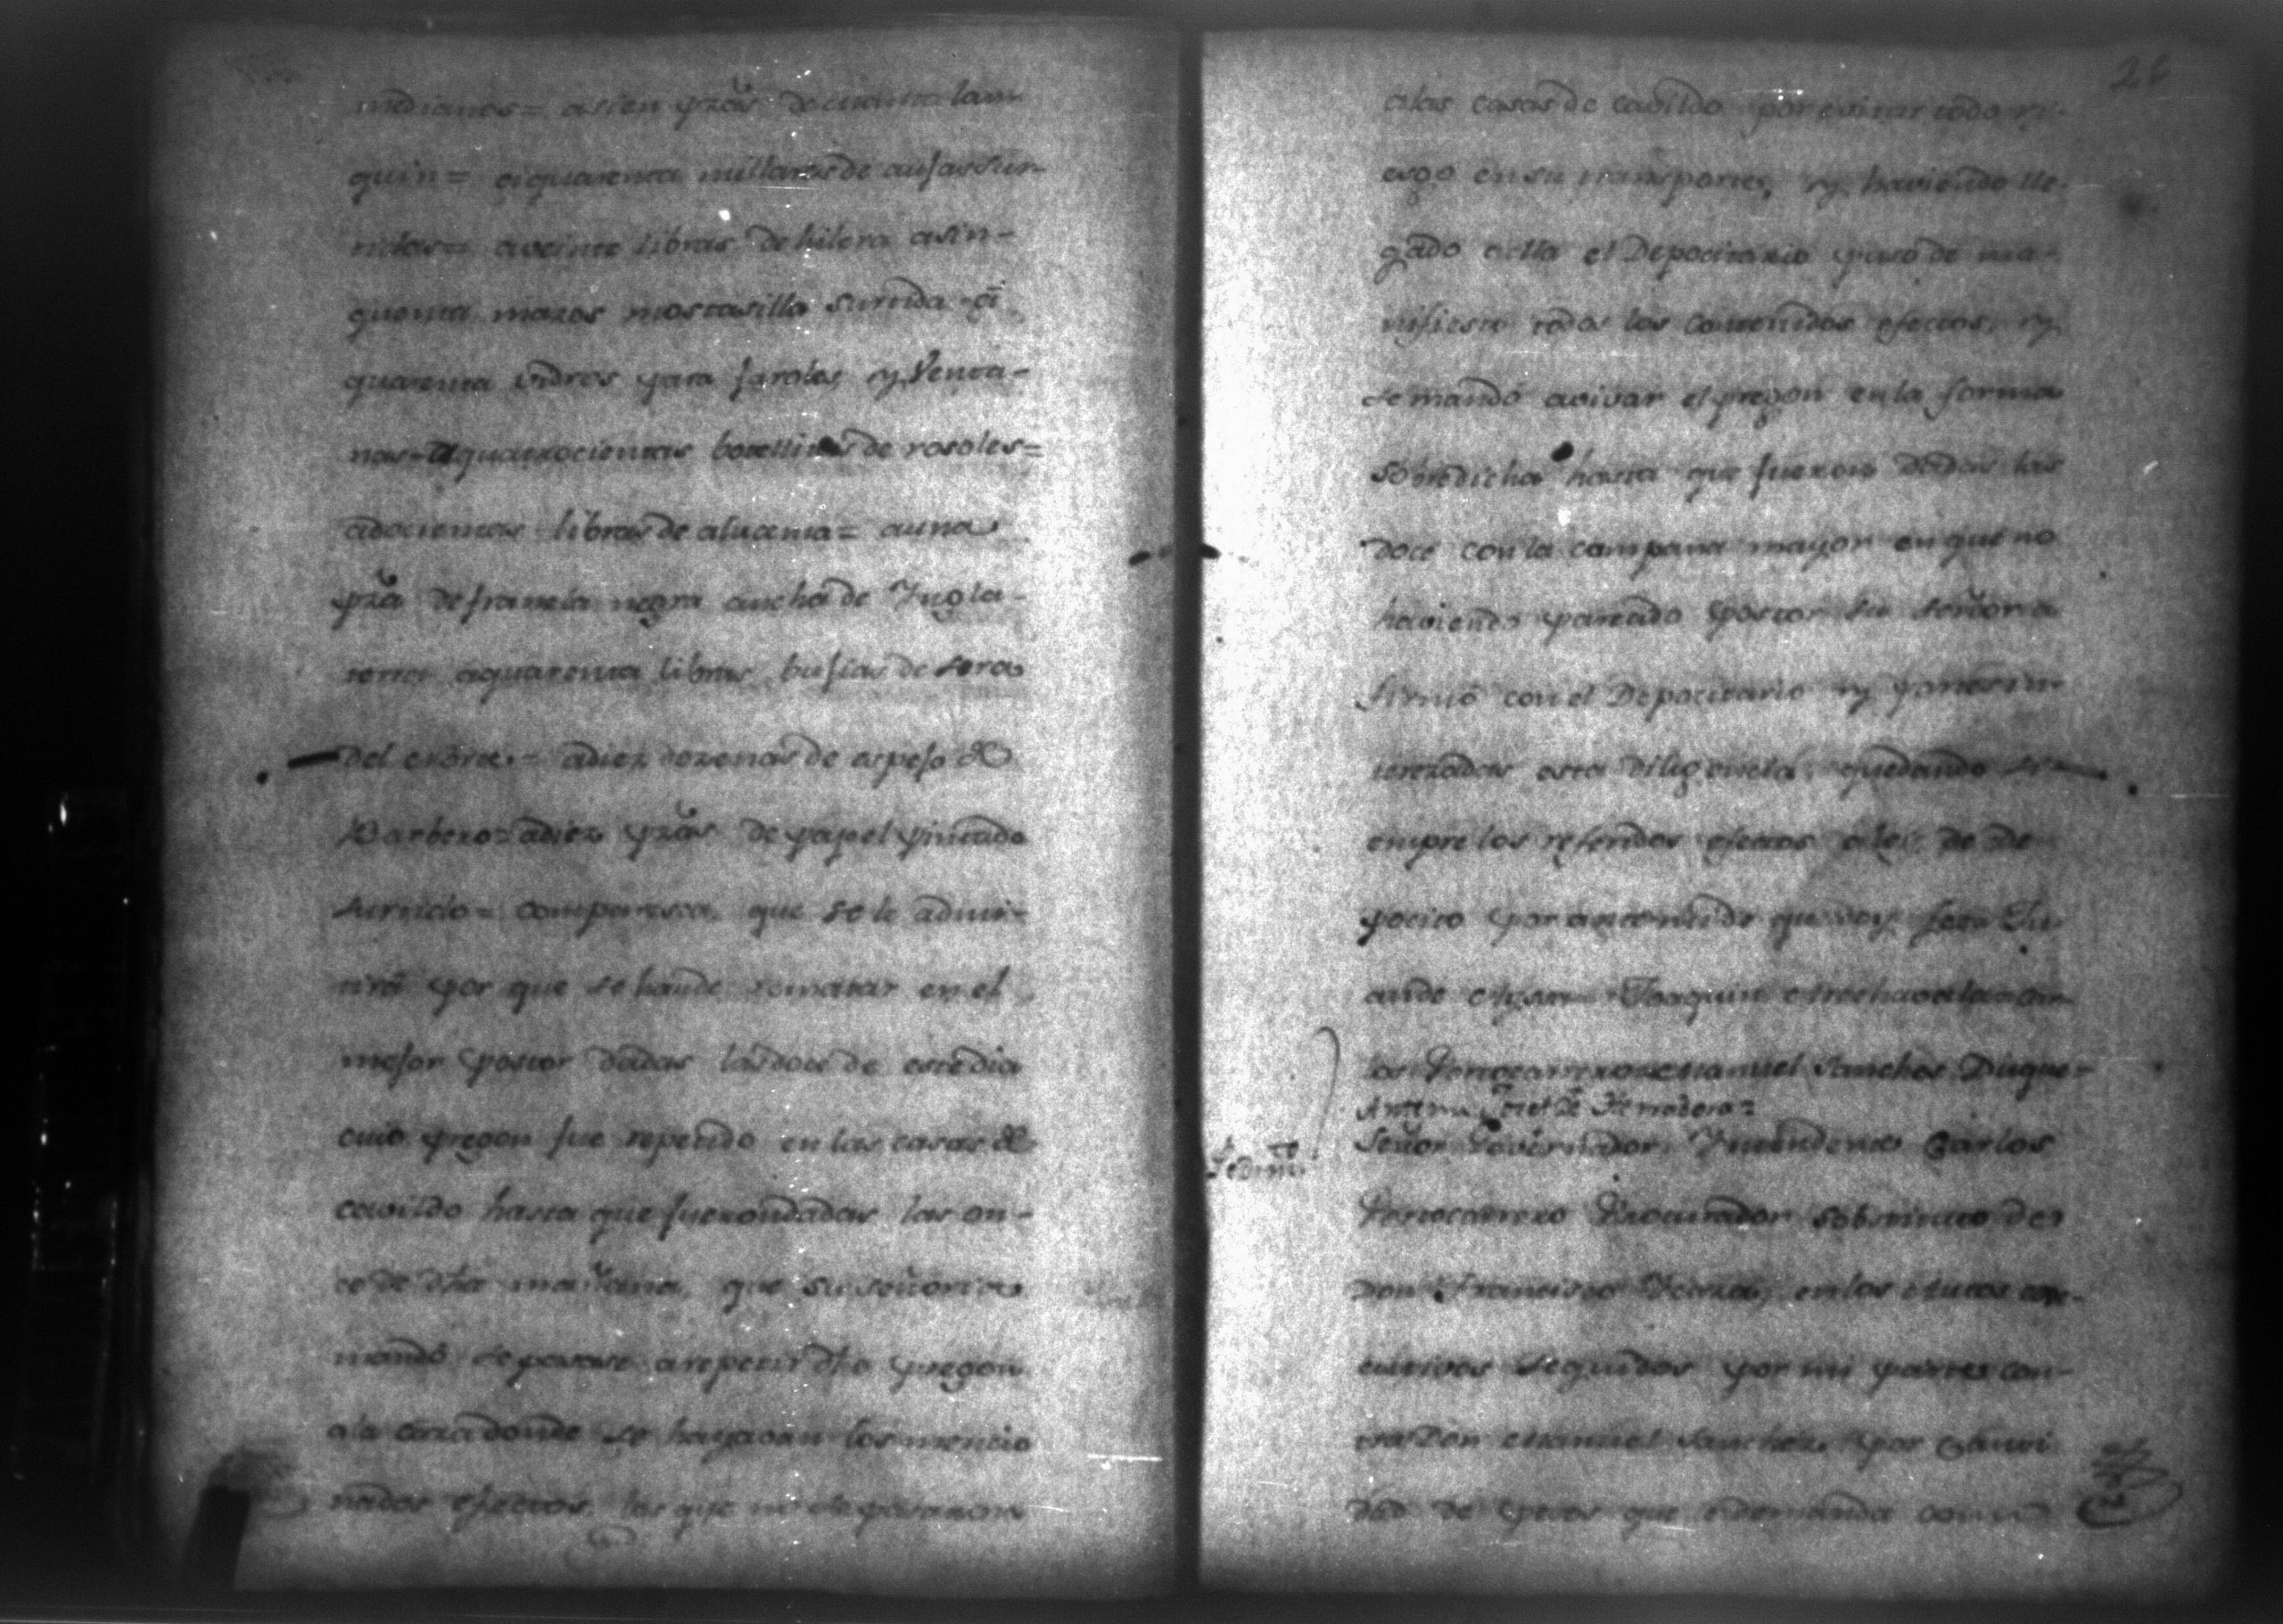 medianos= asien pzas de cinta lam
quin= aquarenta millares de aufas sur-
tidas= aveinte libras de hilera asin-
quenta mazos mostasilla surtida = a
quarenta vidros para faroles y Venta-
nas= aquatrocientas botellitas de rosoles=
adocientas libras de alucema= auna
pza de franela negra ancha de Yngla-
terra aquarenta libras bufias de sera
del = adiez dozenas de espejo de
Barbero= adiez pzas de papel pintado
surtido= comparesca, que se le admi-
tirá por que se hande rematar en el
mejor postor dadas las doce de este dia
cuio pregon fue repetido en las casas de
cavildo hasta que fuerondadas las on-
ce de dha mañana, que su señoria
mandó se pasase arepetir dho pregon
ala casa donde se hayavan los mencio
nados efectos, los que no se pasaron
26
alas casas de cavildo por evitar todo ri-
esgo en su transporte, y haviendo lle-
gado a ella el Depocitario puso de ma-
nifiesto todos los contenidos efectos, y
se mandó avivar el pregon en la forma
sobredicha hasta que fueron dadas las
doce con la campana mayor en que no
haviendo pareado postor su señoria
firmó con el Depocitario y ponesein-
terezadas esta diligencia, quedando si-
empre los referidos efectos de de
pocito por ante mi de que doy fee=
Joaquin
los Portocarrero= Manuel Sanches Duque=
Ante mi Josef de Herradora=
Pedimto
Señor Governador Yntendente Carlos
Portocarrero Procurador sobstituto de
Don Francisco en los autos exe-
cutivos seguidos por mi parte con-
tra Don Manuel Sanchez, por Canti
dad de pesos que demanda